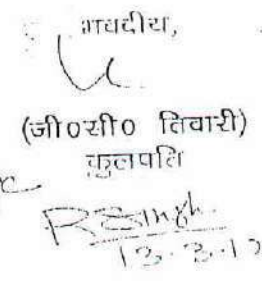 भवदीय,
(जी०सी० तिवारी)
कुलपति
RSingh.
13.3.17